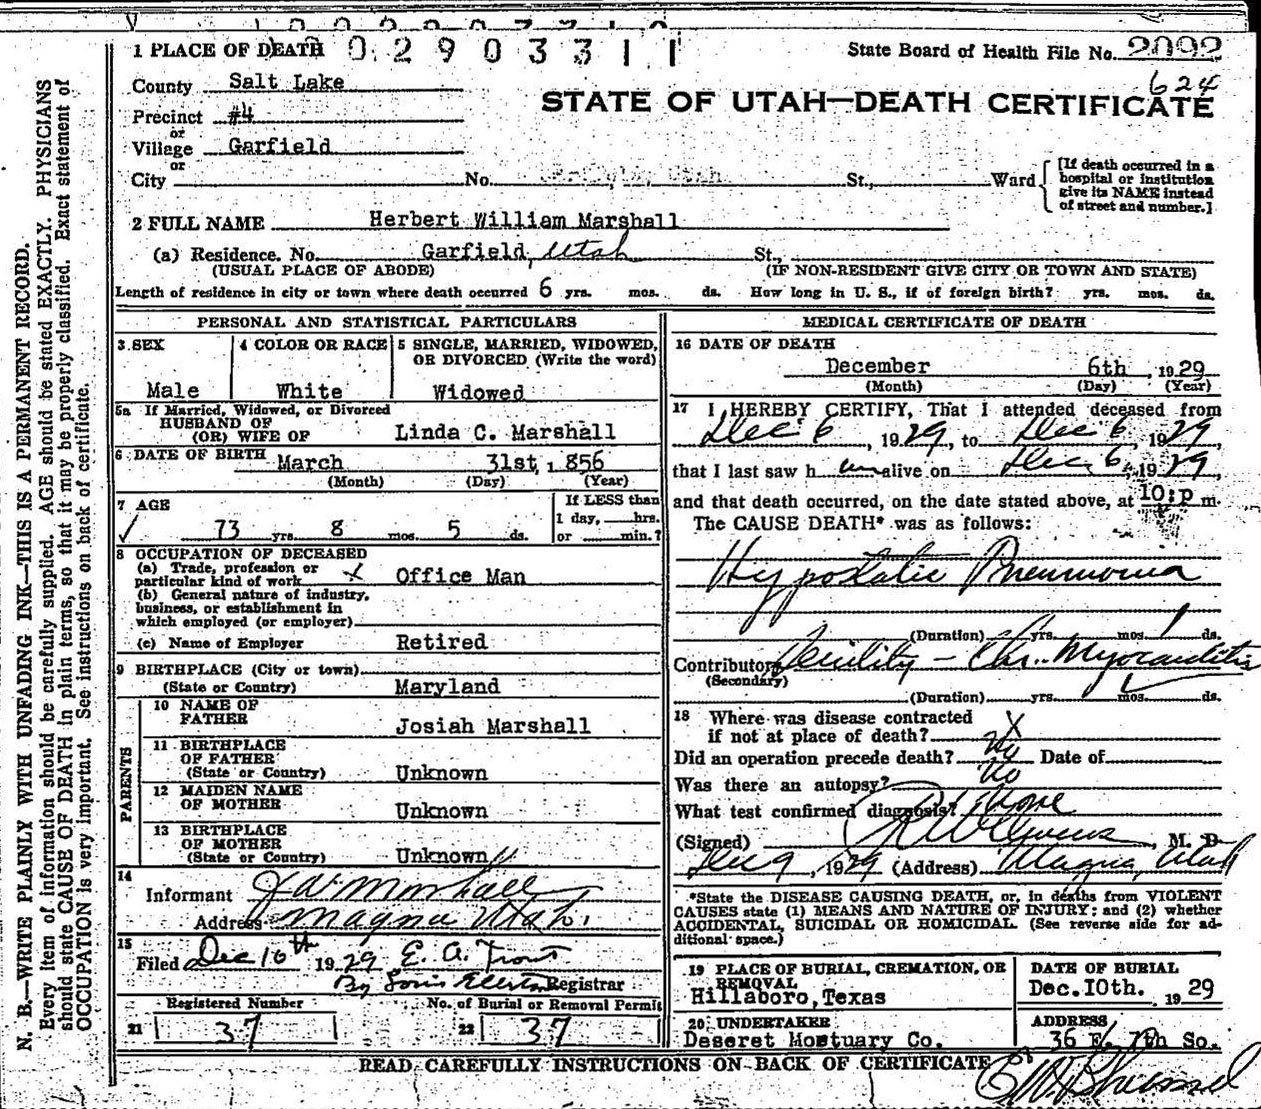 1 PLACE OF DEATH 0 2 9 0 3 3 1 1
State Board of Health File No. 2092
624
County Salt Lake
STATE OF UTAH—DEATH CERTIFICATE
Precinct #4
or
Village Garfield
or
City No. St., Ward
[If death occurred in a
hospital or institution
give its NAME instead
of street and number.]
2 FULL NAME Herbert William Marshall
(a) Residence. No. Garfield, Utah St.,
(USUAL PLACE OF ABODE) (IF NON-RESIDENT GIVE CITY OR TOWN AND STATE)
Length of residence in city or town where death occurred 6 yrs. mos. ds. How long in U. S., if of foreign birth? yrs. mos. ds.
PERSONAL AND STATISTICAL PARTICULARS
3 SEX
Male
4 COLOR OR RACE
White
5 SINGLE, MARRIED, WIDOWED,
OR DIVORCED (Write the word)
Widowed
5a If Married, Widowed, or Divorced
HUSBAND OF
(OR) WIFE OF Linda C. Marshall
6 DATE OF BIRTH March 31st, 1856
(Month) (Day) (Year)
7 AGE
73 yrs. 8 mos. 5 ds.
If LESS than
1 day, hrs.
or min.?
8 OCCUPATION OF DECEASED
(a) Trade, profession or
particular kind of work X Office Man
(b) General nature of industry,
business, or establishment in
which employed (or employer)
(c) Name of Employer Retired
9 BIRTHPLACE (City or town)
(State or Country) Maryland
PARENTS
10 NAME OF
FATHER Josiah Marshall
11 BIRTHPLACE
OF FATHER
(State or Country) Unknown
12 MAIDEN NAME
OF MOTHER Unknown
13 BIRTHPLACE
OF MOTHER
(State or Country) Unknown
14
Informant J W Marshall
Address Magna Utah.
15
Filed Dec 10th 1929 E. A.
By Registrar
Registered Number No. of Burial or Removal Permit
21 37 22 37
MEDICAL CERTIFICATE OF DEATH
16 DATE OF DEATH
December 6th, 1929
(Month) (Day) (Year)
17 I HEREBY CERTIFY, That I attended deceased from
Dec 6, 1929, to Dec 6, 1929,
that I last saw h im alive on Dec, 6, 1929,
and that death occurred, on the date stated above, at 10:p m.
The CAUSE DEATH* was as follows:
Hypostatic Pneumonia
(Duration) yrs. mos. 1 ds.
Contributory Senility — Chr. Myocarditis
(Secondary)
(Duration) yrs. mos. ds.
18 Where was disease contracted
if not at place of death? X
Did an operation precede death? No Date of
Was there an autopsy? No
What test confirmed diagnosis? None
(Signed) , M. D
Dec 9, 1929 (Address) Magna, Utah
*State the DISEASE CAUSING DEATH, or, in deaths from VIOLENT
CAUSES state (1) MEANS AND NATURE OF INJURY; and (2) whether
ACCIDENTAL, SUICIDAL OR HOMICIDAL. (See reverse side for ad-
ditional space.)
19 PLACE OF BURIAL, CREMATION, OR
REMOVAL
Hillsboro, Texas
DATE OF BURIAL
Dec. 10th. 1929
20 UNDERTAKER
Deseret Mortuary Co.
ADDRESS
36 E. 7th So.
READ CAREFULLY INSTRUCTIONS ON BACK OF CERTIFICATE
N. B.—WRITE PLAINLY WITH UNFADING INK—THIS IS A PERMANENT RECORD.
Every item of information should be carefully supplied. AGE should be stated EXACTLY. PHYSICIANS
should state CAUSE OF DEATH in plain terms, so that it may be properly classified. Exact statement of
OCCUPATION is very important. See instructions on back of certificate.